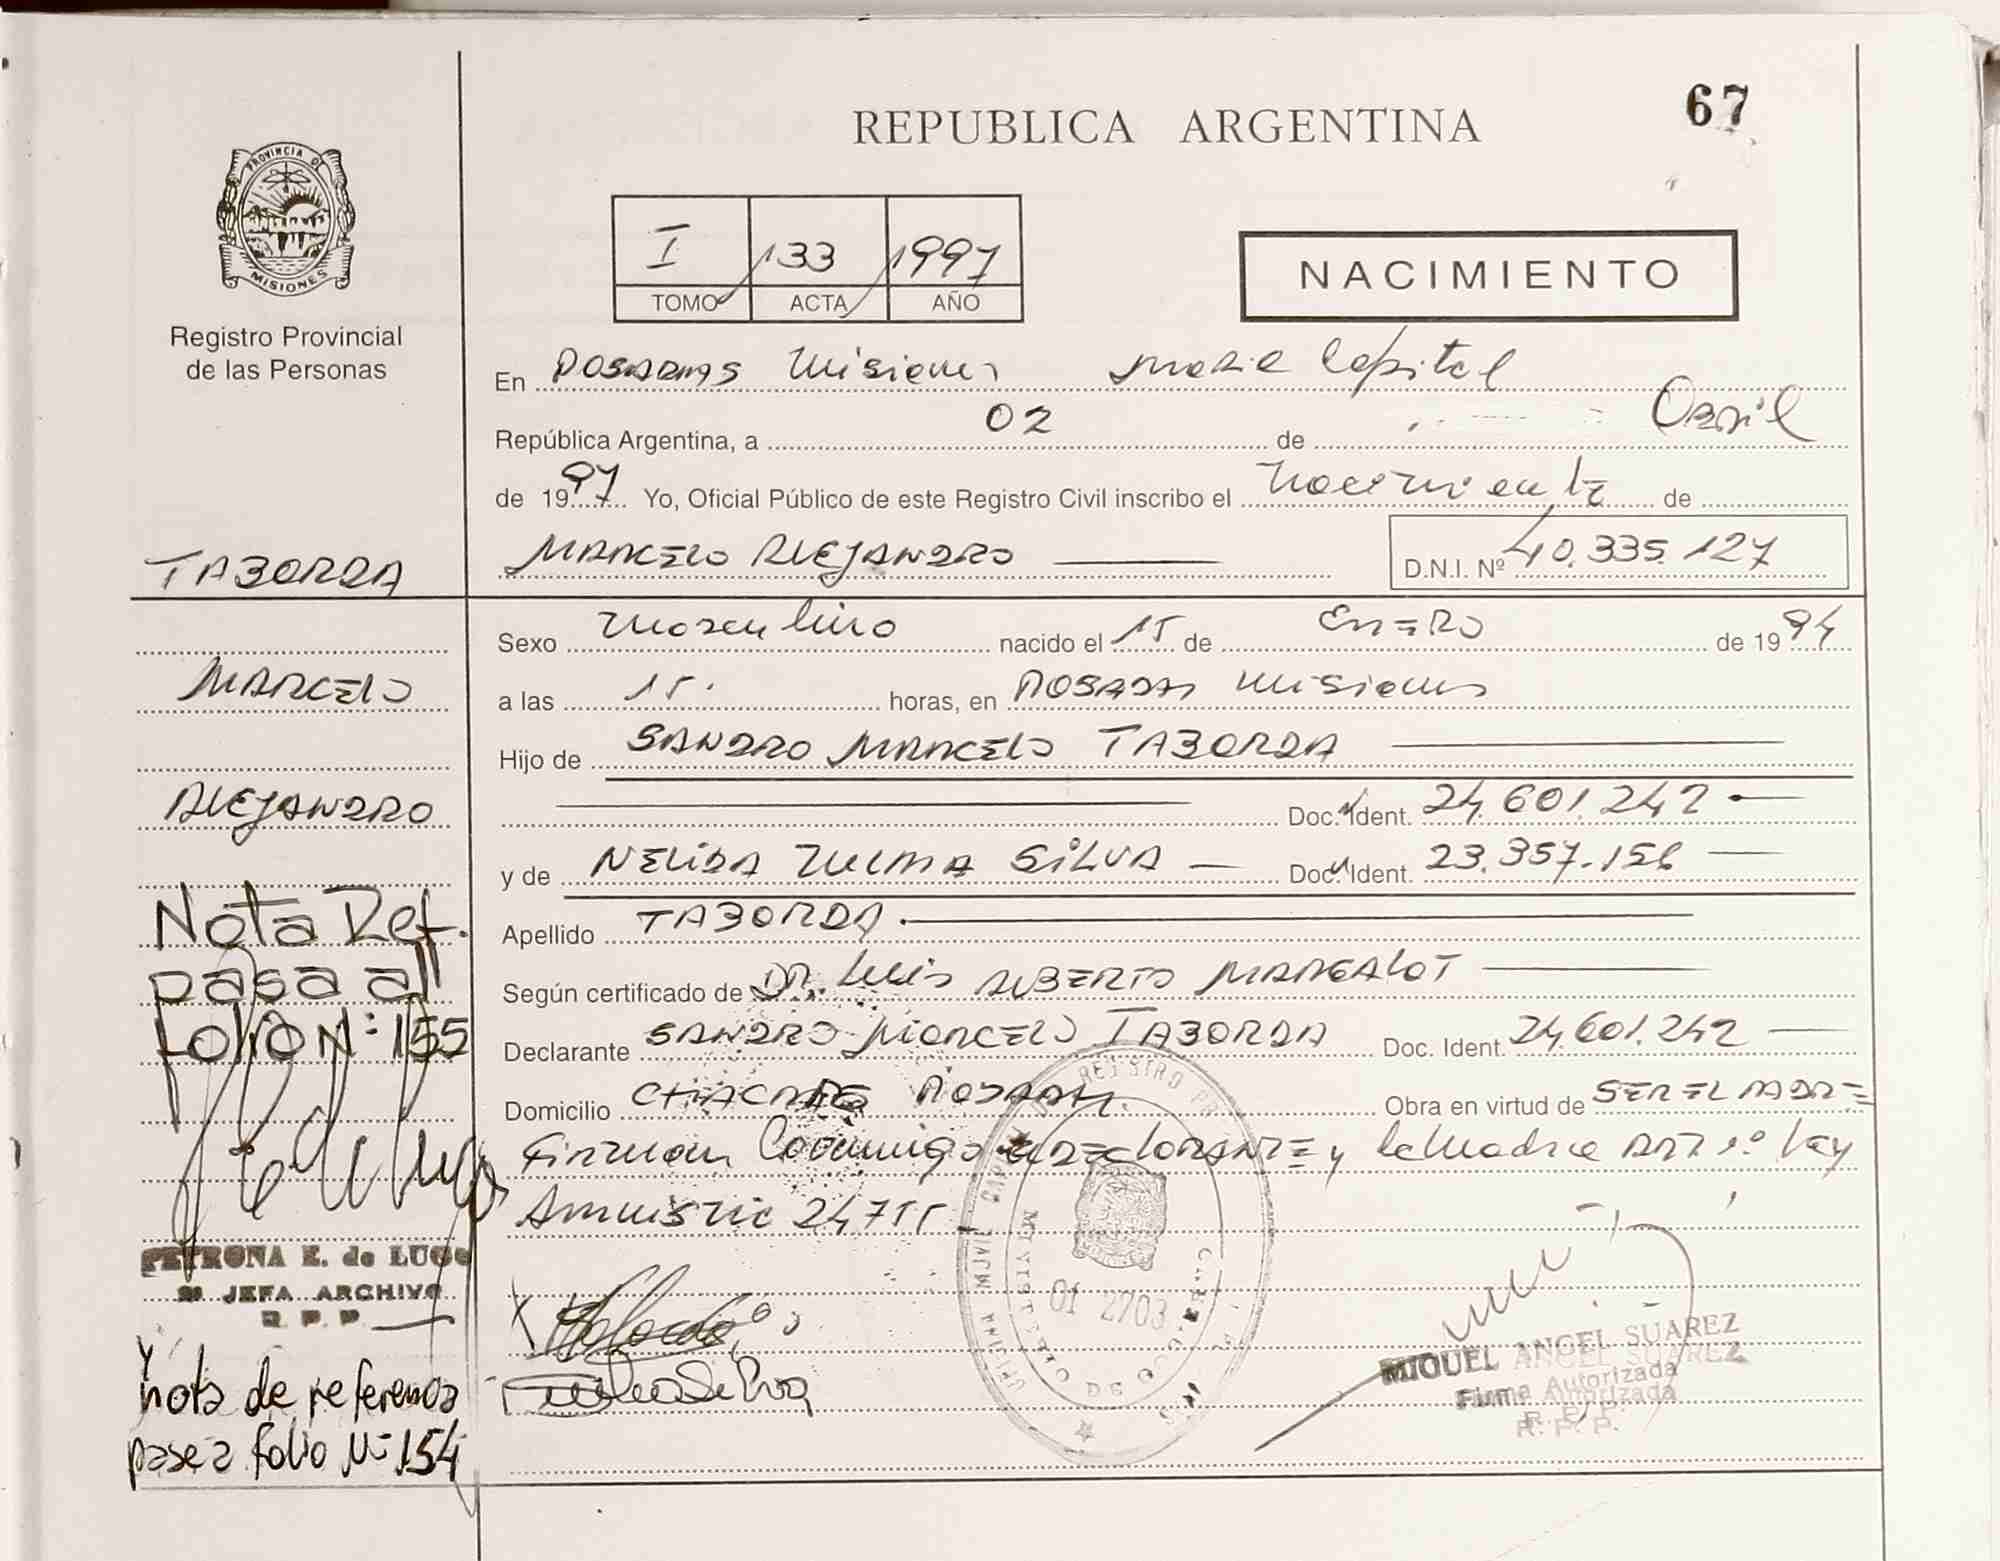 67
REPUBLICA ARGENTINA
PROVINCIA DE
MISIONES
Registro Provincial
de las Personas
I 133 1997
TOMO ACTA AÑO
NACIMIENTO
En POSADAS Misiones Capital
República Argentina, a 02 de Abril
de 1997 Yo, Oficial Público de este Registro Civil inscribo el Nacimiento de
TABORDA
MARCELO ALEJANDRO D.N.I. Nº 40.335.127
Sexo Masculino nacido el 15 de ENERO de 1994
MARCELO
a las 15. horas, en POSADAS Misiones
Hijo de SANDRO MARCELO TABORDA
ALEJANDRO
Doc. Ident. 24.601.242
y de NELIDA ZULMA SILVA Doc. Ident. 23.357.156
Nota Ref.
Apellido TABORDA
pasa al
Según certificado de DR. Luis ALBERTO MARGALOT
Folio Nº 155
Declarante SANDRO MARCELO TABORDA Doc. Ident. 24.601.242
Domicilio CHACRA POSADAS. Obra en virtud de SER EL PADRE
Firman Conmigo el DECLARANTE y la Madre ART 1º Ley
Amnistia 24755
PETRONA E. de LUGO
JEFA ARCHIVO
R. P. P.
y
nota de referencia
pase a folio Nº 154
01 2703
MIGUEL ANGEL SUAREZ
Firma Autorizada
R. P. P.